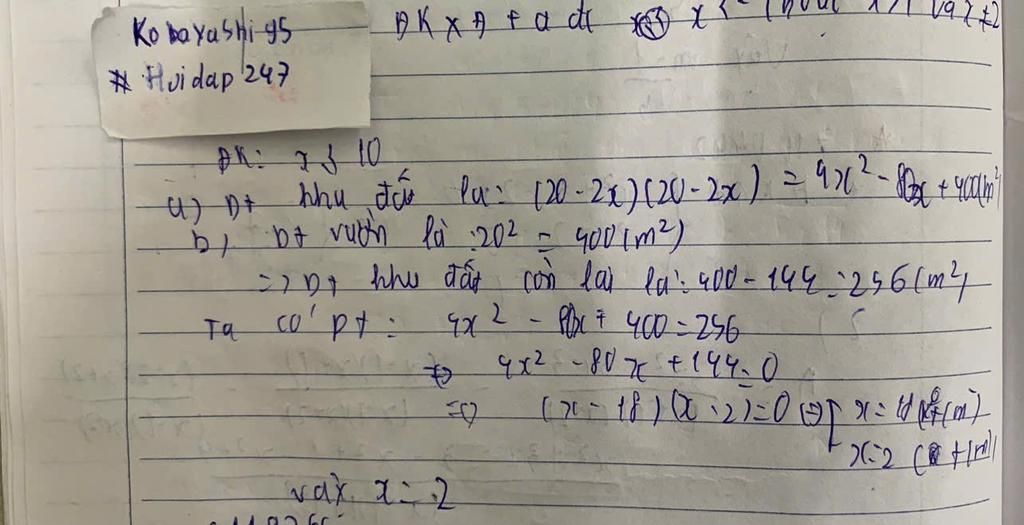 Kobayashi95
# Hoidap 247
ĐKXĐ
ĐK: x < 10
a) Dt khu đất là: (20 - 2x)(20 - 2x) = 4x² - 80x + 400(m²)
b) Dt vườn là : 20² = 400(m²)
=> Dt khu đất còn lại là: 400 - 144 = 256(m²)
Ta có pt: 4x² - 80x + 400 = 256
⇔ 4x² - 80x + 144 = 0
=> (x - 18)(x - 2) = 0 ⇔ [ x = 18 (m)
x = 2 (t/m)
vậy x = 2